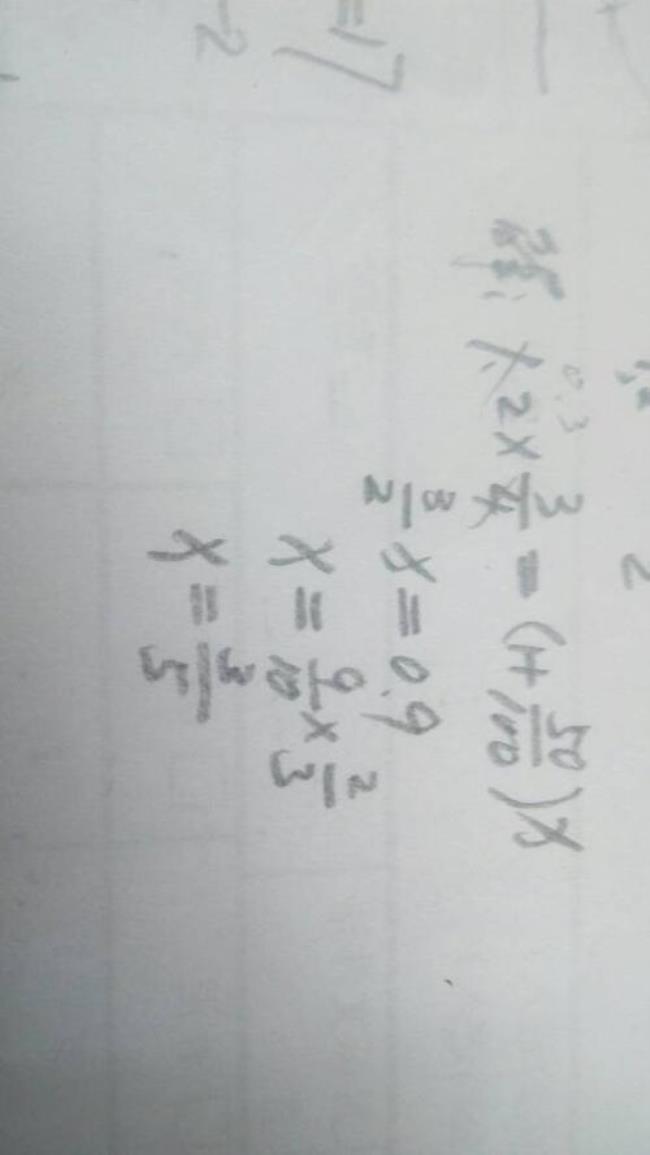 =17
-2
2
解: 1.2 × 3/4 = (1+50/100)x
0.3
3/2 x = 0.9
x = 9/10 × 2/3
x = 3/5